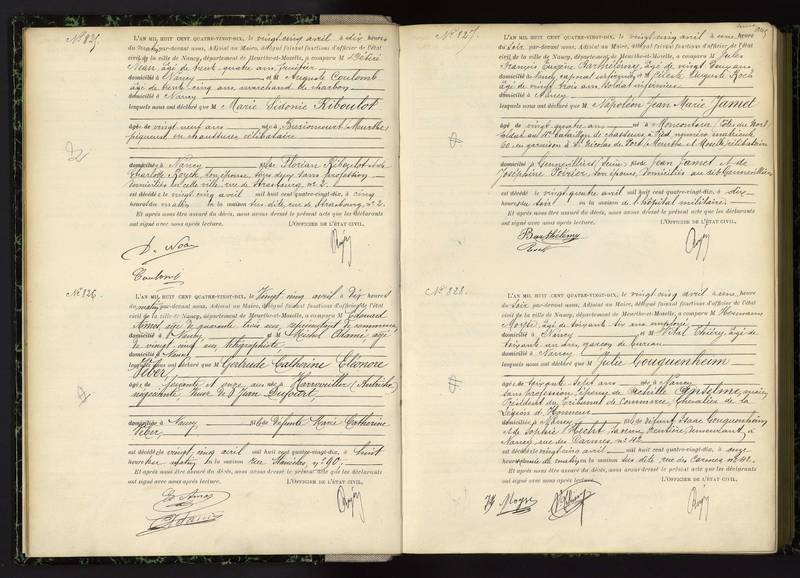 No 825.
L'AN MIL HUIT CENT QUATRE-VINGT-DIX, le vingt-cinq avril à dix heures
du matin, par-devant nous, Adjoint au Maire, délégué faisant fonctions d'officier de l'état
civil de la ville de Nancy, département de Meurthe-et-Moselle, a comparu M
Jean, âgé de trente-quatre ans, fruitier
domicilié à Nancy et M Auguste Coulomb
âgé de trente cinq ans, marchand de charbon
domicilié à Nancy
lesquels nous ont déclaré que M Marie Sidonie Riboulot
âgée de vingt neuf ans née à Meurthe
piqueuse en chaussures célibataire
domiciliée à Nancy fille de Florian Riboulot et de
Charlotte son épouse, tous deux sans profession
domiciliés en cette ville, rue de Strasbourg, no 2.
est décédée le vingt-cinq avril mil huit cent quatre-vingt-dix, à cinq
heures du matin en la maison sus dite, rue de Strasbourg, no 2.
Et après nous être assuré du décès, nous avons dressé le présent acte que les déclarants
ont signé avec nous après lecture. L'OFFICIER DE L'ÉTAT CIVIL,
Coulomb
No 826.
L'AN MIL HUIT CENT QUATRE-VINGT-DIX, le vingt cinq avril à dix heures
du matin, par-devant nous, Adjoint au Maire, délégué faisant fonctions d'officier de l'état
civil de la ville de Nancy, département de Meurthe-et-Moselle, a comparu M Edouard
âgé de quarante trois ans, représentant de commerce
domicilié à Nancy et M Michel Adami âgé
de vingt-cinq ans, lithographiste,
domicilié à Nancy
lesquels nous ont déclaré que M Gertrude Catherine Eléonore
Veber
âgée de soixante et onze ans née à (Autriche)
négociante, veuve de Jean
domiciliée à Nancy fille de défunte Marie Catherine
Veber
est décédée le vingt cinq avril mil huit cent quatre-vingt-dix, à huit
heures matin en la maison rue Stanislas, no 90.
Et après nous être assuré du décès, nous avons dressé le présent acte que les déclarants
ont signé avec nous après lecture. L'OFFICIER DE L'ÉTAT CIVIL,
Adami
No 827.
L'AN MIL HUIT CENT QUATRE-VINGT-DIX, le vingt-cinq avril à une heure
du soir par-devant nous, Adjoint au Maire, délégué faisant fonctions d'officier de l'état
civil de la ville de Nancy, département de Meurthe-et-Moselle, a comparu M Jules
François Eugène Barthélemy, âgé de vingt ans
domicilié à Nancy caporal infirmier et M Céleste Auguste Roch
âgé de vingt trois ans soldat infirmier
domicilié à Nancy
lesquels nous ont déclaré que M Napoléon Jean Marie Jamet
âgé de vingt quatre ans né à Moncontour (Côtes du Nord)
soldat au bataillon de chasseurs à pied, numéro matricule
en garnison à St Nicolas du Port, Meurthe et Moselle, célibataire
domicilié à Gennevilliers, Seine, fils de Jean Jamet et de
Joséphine Poirier son épouse, domiciliés au dit Gennevilliers
est décédé le vingt quatre avril mil huit cent quatre-vingt-dix, à dix
heures du soir en la maison de l'hôpital militaire
Et après nous être assuré du décès, nous avons dressé le présent acte que les déclarants
ont signé avec nous après lecture. L'OFFICIER DE L'ÉTAT CIVIL,
Barthélemy
Roch
No 828.
L'AN MIL HUIT CENT QUATRE-VINGT-DIX, le vingt-cinq avril à une heure
du soir par-devant nous, Adjoint au Maire, délégué faisant fonctions d'officier de l'état
civil de la ville de Nancy, département de Meurthe-et-Moselle, a comparu M Hermann
Moyse âgé de soixante-six ans employé
domicilié à Nancy et M Vital Thiéry, âgé de
soixante un ans, garçon de bureau
domicilié à Nancy
lesquels nous ont déclaré que M Julie Gouguenheim
âgée de soixante sept ans née à Nancy
sans profession, épouse de Anselme,
Président du Tribunal de Commerce, Chevalier de la
Légion d'Honneur
domiciliée à Nancy fille de défunt Isaac Gouguenheim
et de Sophie Hecht, sa veuve, rentière, demeurant à
Nancy, rue des Carmes, no 42
est décédée le vingt cinq avril mil huit cent quatre-vingt-dix, à onze
heures du matin en la maison sus dite, rue des Carmes no 42.
Et après nous être assuré du décès, nous avons dressé le présent acte que les déclarants
ont signé avec nous après lecture. L'OFFICIER DE L'ÉTAT CIVIL,
Moyse